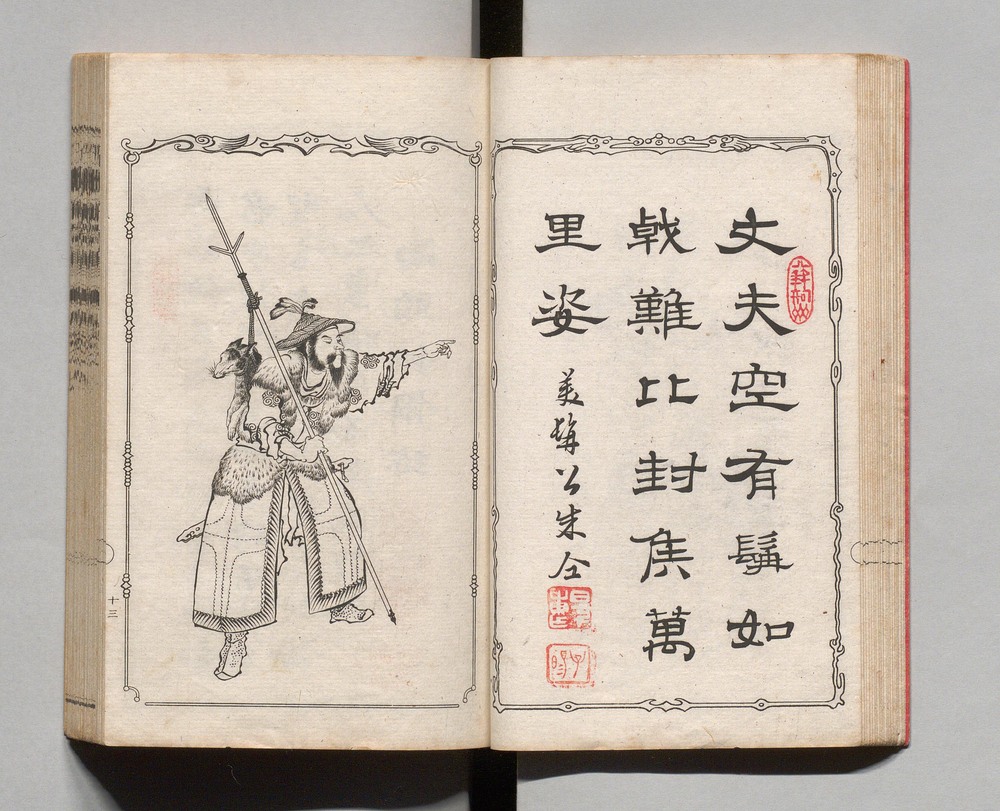 丈夫空有鬚如
戟難比封侯萬
里姿
美髯公朱仝
十三